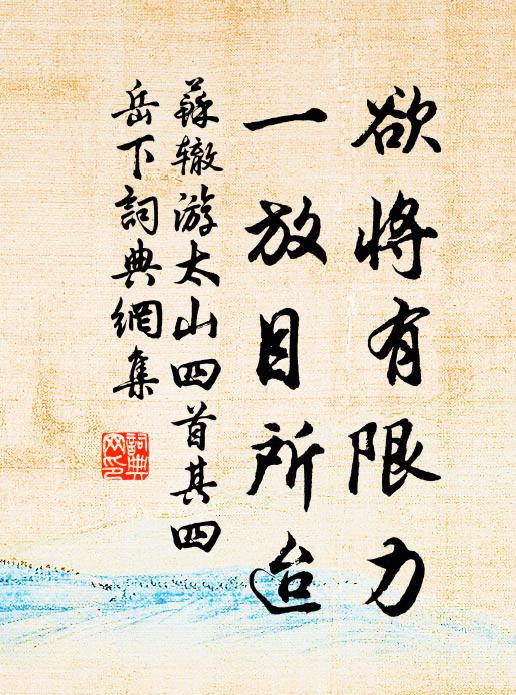 欲将有限力
一放目所迨
蘇辙游太山四首其四
岳下詞典網集
詞典
网印